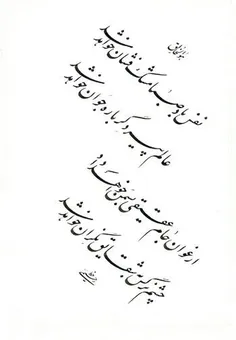 هوالخالق
نفس باد صبا مشک فشان خواهد شد
عالم پیر دگر باره جوان خواهد شد
ارغوان جام عقیقی بسمن خواهد داد
چشم نرگس به شقایق نگران خواهد شد